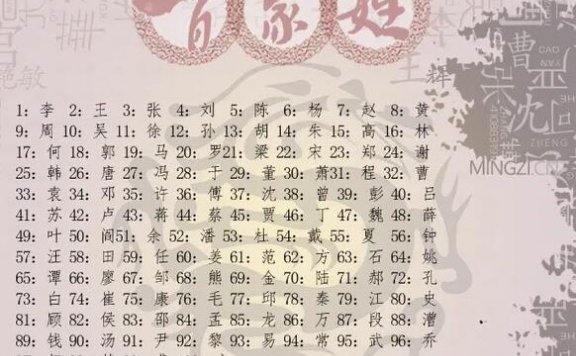 百家姓
1：李 2：王 3：张 4：刘 5：陈 6：杨 7：赵 8：黄
9：周 10：吴 11：徐 12：孙 13：胡 14：朱 15：高 16：林
17：何 18：郭 19：马 20：罗21：梁 22：宋 23：郑 24：谢
25：韩 26：唐 27：冯 28：于 29：董 30：萧31：程 32：曹
33：袁 34：邓 35：许 36：傅 37：沈 38：曾 39：彭 40：吕
41：苏 42：卢 43：蒋 44：蔡 45：贾 46：丁 47：魏 48：薛
49：叶 50：阎51：余 52：潘 53：杜 54：戴 55：夏 56：钟
57：汪 58：田 59：任 60：姜 61：范 62：方 63：石 64：姚
65：谭 66：廖 67：邹 68：熊 69：金 70：陆 71：郝 72：孔
73：白 74：崔 75：康 76：毛 77：邱 78：秦 79：江 80：史
81：顾 82：侯 83：邵 84：孟 85：龙 86：万 87：段 88：漕
89：钱 90：汤 91：尹 92：黎 93：易 94：常 95：武 96：乔
王 辉
敏
曹
CAO
YAN
张
沈
ZHENG
HE
MINGZI.CN